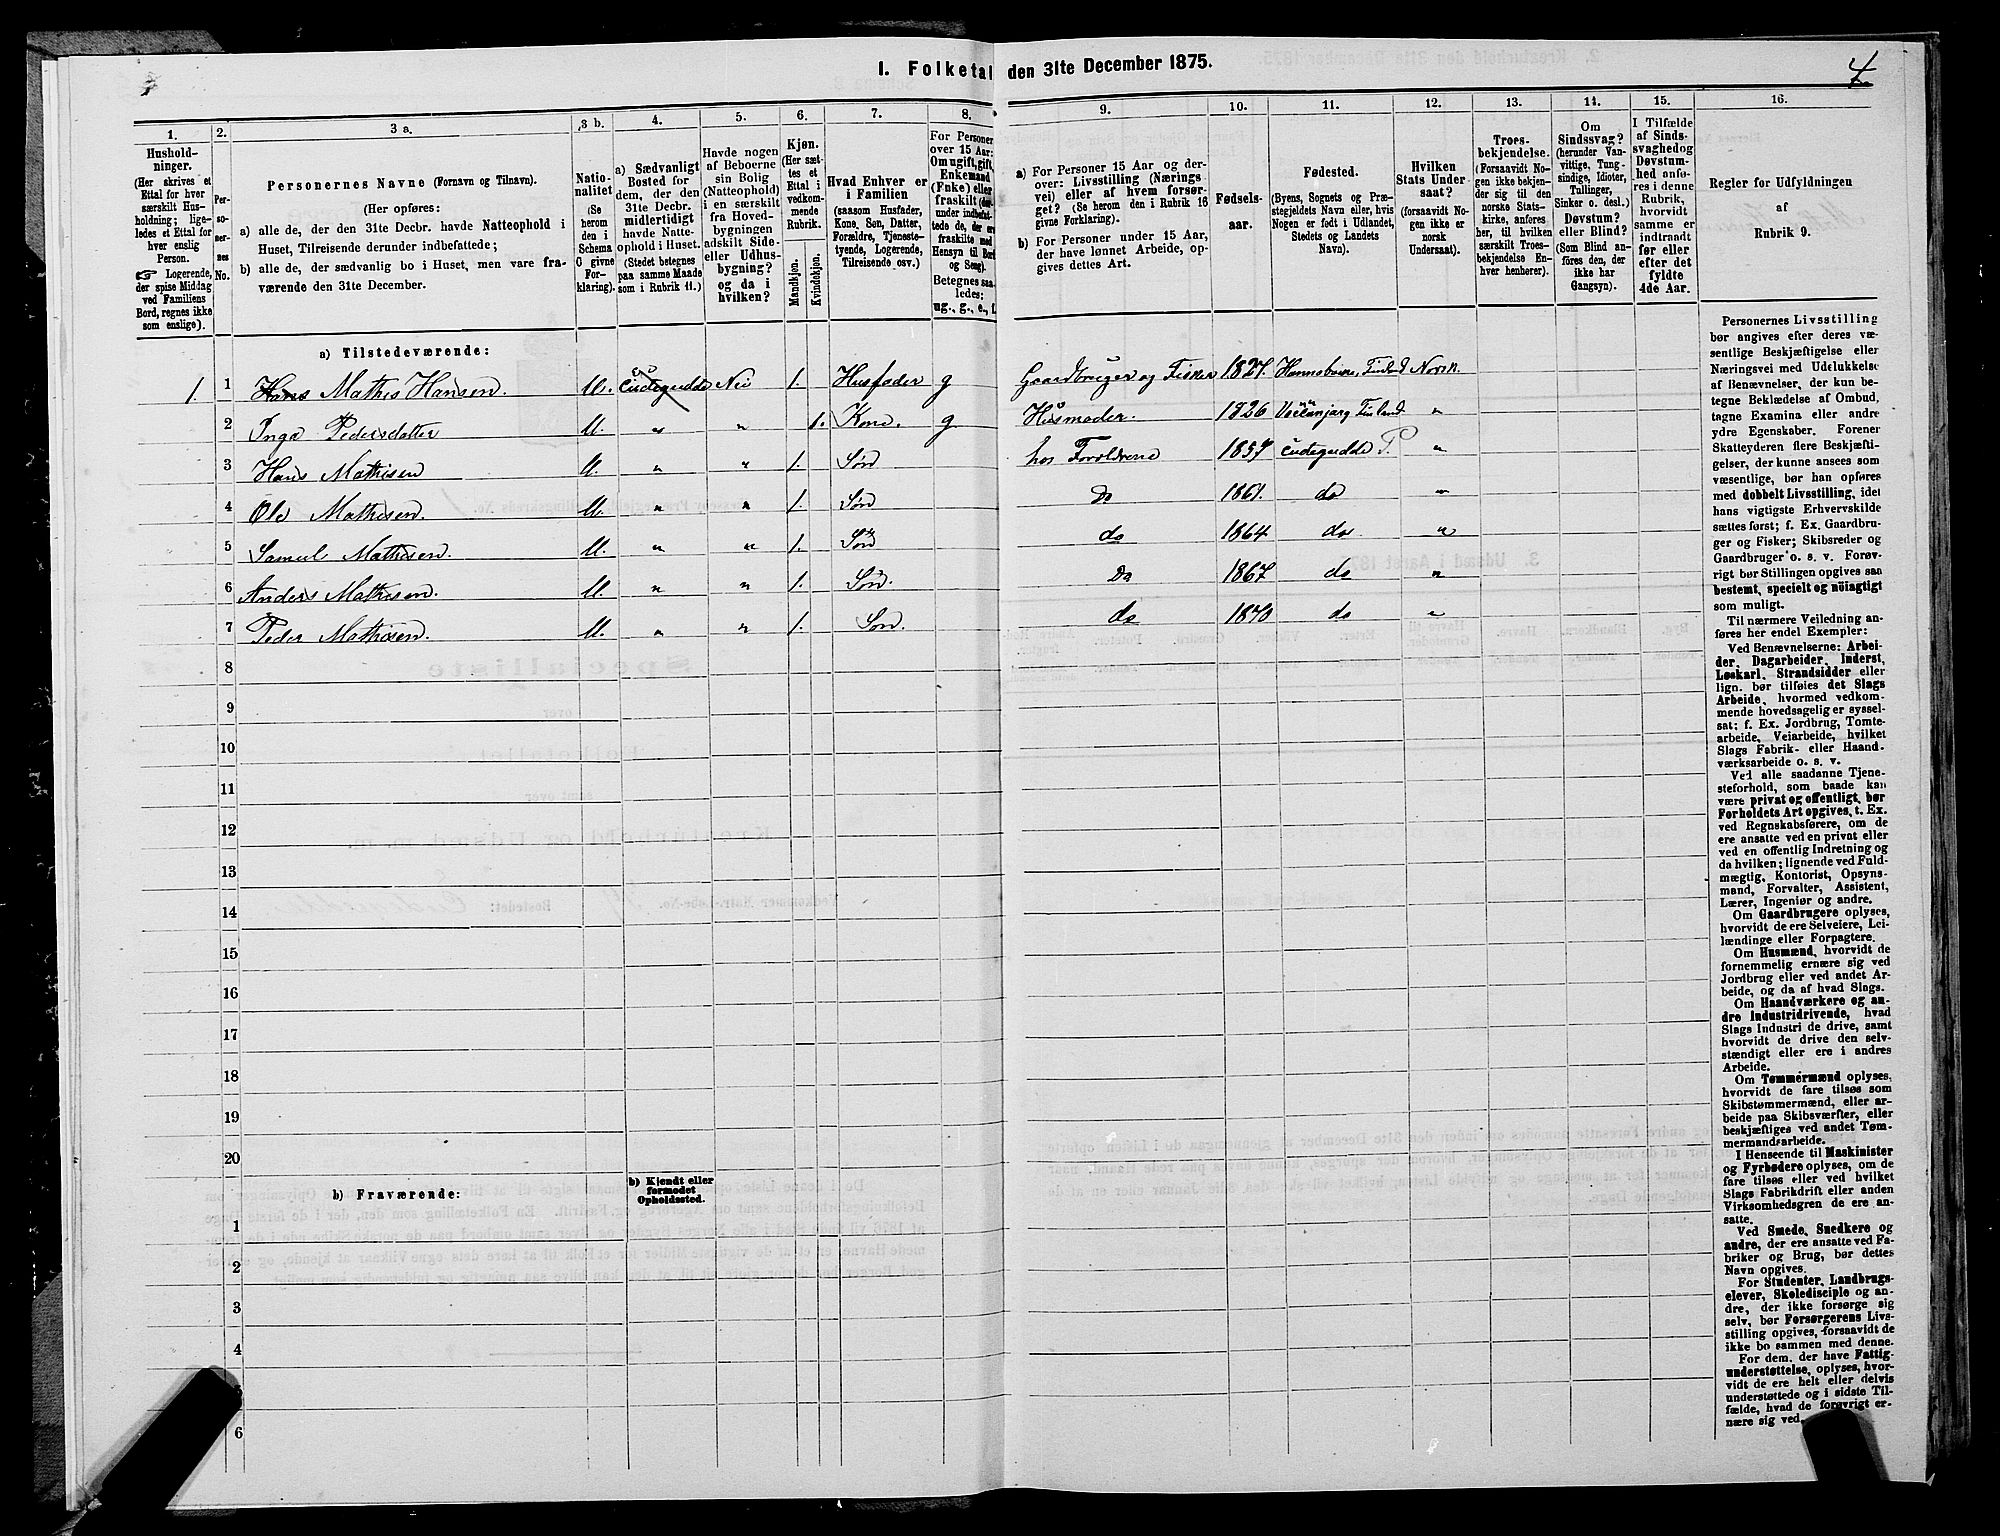 I. Folketal den 31te December 1875.
4
1.
Hushold-
ninger.
(Her skrives et
Ettal for hver
særskilt Hus-
holdning; lige-
ledes et Ettal for
hver enslig
Person.
☞ Logerende,
der spise Middag
ved Familiens
Bord, regnes ikke
som enslige).
2.
Per-
so-
ner-
nes
No.
3 a.
Personernes Navne (Fornavn og Tilnavn).
(Her opføres:
a) alle de, der den 31te Decbr. havde Natteophold i
Huset, Tilreisende derunder indbefattede;
b) alle de, der sædvanlig bo i Huset, men vare fra-
værende den 31te December.
3 b.
Natio-
nalitet
(Se
herom
den i
Schema
C givne
For-
klaring).
4.
a) Sædvanligt
Bosted for
dem, der den
31te Decbr.
midlertidigt
havde Natte-
ophold i Huset.
(Stedet betegnes
paa samme Maade
som i Rubrik 11.)
5.
Havde nogen
af Beboerne
sin Bolig
(Natteophold)
i en særskilt
fra Hoved-
bygningen
adskilt Side-
eller Udhus-
bygning?
og da i
hvilken?
6.
Kjøn.
(Her sæt-
tes et
Ettal i
vedkom-
mende
Rubrik.
Mandkjøn.
Kvindekjøn.
7.
Hvad Enhver er
i Familien
(saasom Husfader,
Kone, Søn, Datter,
Forældre, Tjeneste-
tyende, Logerende,
Tilreisende osv.)
8.
For Personer
over 15 Aar:
Om ugift, gift,
Enkemand
(Enke) eller
fraskilt (der-
under indbefat-
tede de, der ere
fraskilte med
Hensyn til Bord
og Seng).
Betegnes saa-
ledes:
ug., g., e., f.
9.
a) For Personer 15 Aar og der-
over: Livsstilling (Nærings
vei) eller af hvem forsør-
get? (Se herom den i Rubrik 16
givne Forklaring).
b) For Personer under 15 Aar,
der have lønnet Arbeide, op-
gives dettes Art.
10.
Fødsels-
aar.
11.
Fødested.
(Byens, Sognets og Præ-
stegjeldets Navn eller, hvis
Nogen er født i Udlandet,
Stedets og Landets
Navn).
12.
Hvilken
Stats Under
saat?
(forsaavidt No-
gen ikke er
norsk
Undersaat).
13.
Troes-
bekjendelse.
(Forsaavidt No-
gen ikke bekjen-
der sig til den
norske Stats-
kirke, anføres
her, til hvilken
særskilt Troes-
bekjendelse En-
hver henhører).
14.
Om
Sindssvag?
(herunder Van-
vittige, Tung-
sindige, Idioter,
Tullinger,
Sinker o. desl.)
Døvstum?
eller Blind?
(Som Blind an-
føres den, der
ikke har
Gangsyn).
15.
I Tilfælde
af Sinds-
svaghed og
Døvstum-
hed anfø-
res i denne
Rubrik,
hvorvidt
samme er
indtraadt
før eller
efter det
fyldte
4de Aar.
16.
Regler for Udfyldningen
af
Rubrik 9.
a) Tilstedeværende:
1 1 Mathis Hansen. Nei 1. Husfader g Gaardbruger og Fisker 1827. Norsk.
2 Inga Pedersdatter " " 1. Kone. g Husmoder. 1826 "
3 Hans Mathisen " " 1. Søn hos Forældrene 1857 "
4 Ole Mathisen. " " 1. Søn Do 1861. do "
5 Samuel Mathisen. " " 1. Søn do 1864 do "
6 Anders Mathisen. " " 1. Søn. Do 1867 do "
7 Peder Mathisen. " " 1. Søn. do 1870 do "
8
9
10
11
12
13
14
15
16
17
18
19
20
b) Fraværende:
b) Kjendt eller
formodet
Opholdssted.
1
2
3
4
5
6
Personernes Livsstilling
bør angives efter deres væ-
sentlige Beskjæftigelse eller
Næringsvei med Udelukkelse
af Benævnelser, der kun be-
tegne Beklædelse af Ombud,
tagne Examina eller andre
ydre Egenskaber. Forener
Skatteyderen flere Beskjæfti-
gelser, der kunne ansees som
væsentlige, bør han opføres
med dobbelt Livsstilling, idet
hans vigtigste Erhvervskilde
sættes først; f. Ex. Gaardbru-
ger og Fisker; Skibsreder og
Gaardbruger o. s. v. Forøv-
rigt bør Stillingen opgives saa
bestemt, specielt og nöiagtigt
som muligt.
Til nærmere Veiledning an-
føres her endel Exempler:
Ved Benævnelserne: Arbei-
der, Dagarbeider, Inderst,
Løskarl, Strandsidder eller
lign. bør tilføies det Slags
Arbeide, hvormed vedkom-
mende hovedsagelig er syssel-
sat; f. Ex. Jordbrug, Tomte-
arbeide, Veiarbeide, hvilket
Slags Fabrik- eller Haand-
værksarbeide o. s. v.
Ved alle saadanne Tjene-
steforhold, som baade kan
være privat og offentligt, bør
Forholdets Art opgives, t. Ex.
ved Regnskabsførere, om de
ere ansatte ved en privat eller
ved en offentlig Indretning og
da hvilken; lignende ved Fuld-
mægtig, Kontorist, Opsyns-
mand, Forvalter, Assistent,
Lærer, Ingeniør og andre.
Om Gaardbrugere oplyses,
hvorvidt de ere Selveiere, Lei-
lændinge eller Forpagtere.
Om Husmænd, hvorvidt de
fornemmelig ernære sig ved
Jordbrug eller ved andet Ar-
beide, og da af hvad Slags.
Om Haandværkere og an-
dre Industridrivende, hvad
Slags Industri de drive, samt
hvorvidt de drive den selv-
stændigt eller ere i andres
Arbeide.
Om Tømmermænd oplyses,
hvorvidt de fare tilsøs som
Skibstømmermænd, eller ar-
beide paa Skibsværfter, eller
beskjæftiges ved andet Tøm-
mermandsarbeide.
I Henseende til Maskinister
og Fyrbødere oplyses, om de
fare tilsøs eller ved hvilket
Slags Fabrikdrift eller anden
Virksomhedsgren de ere an-
satte.
Ved Smede, Snedkere og
andre, der ere ansatte ved Fa-
briker og Brug, bør dettes
Navn opgives.
For Studenter, Landbrugs-
elever, Skoledisciple og an-
dre, der ikke forsørge sig
selv, bør Forsørgerens Livs-
stilling opgives, forsaavidt de
ikke bo sammen med denne.
For dem, der have Fattig-
understøttelse, oplyses, hvor-
vidt de ere helt eller delvis
understøttede og i sidste Til-
fælde, hvad de forøvrigt er-
nære sig ved.